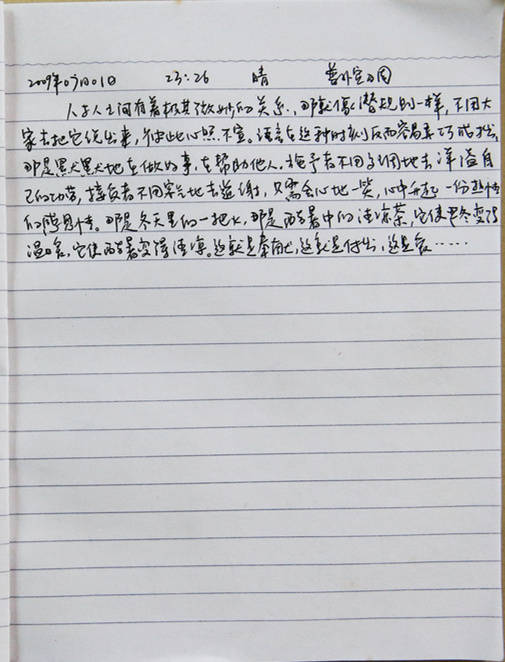 2009年07月01日 23:26 晴
人与人之间有着极其微妙的关系,那就像潜规则一样,不用大
家去把它说出来,彼此心照不宣。语言在这种时刻反而容易弄巧成拙。
那是默默地在做的事,在帮助他人。施予者不用多闻地去洋溢自
己的功劳,接受者不用客气地去答谢,只需会心地一笑,心中升起一份热情
的。那是冬天里的一把火,那是酷暑中的清凉茶,它使严冬变得
温暖,它使酷暑变得清凉。这就是奉献,这就是付出,这是爱……